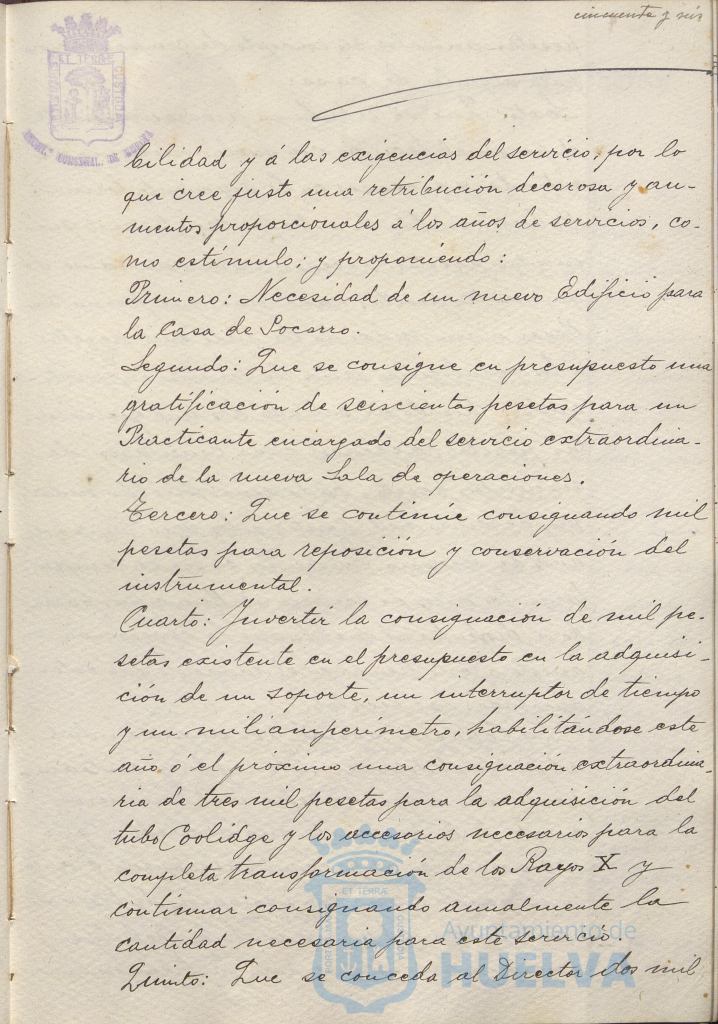 cincuenta y seis
bilidad y á las exigencias del servicio, por lo
que cree justo una retribución decorosa y au-
mentos proporcionales á los años de servicios, co-
mo estímulo; y proponiendo:
Primero: Necesidad de un nuevo Edificio para
la Casa de Socorro.
Segundo: Que se consigne en presupuesto una
gratificación de seiscientas pesetas para un
Practicante encargado del servicio extraordina-
rio de la nueva Sala de operaciones.
Tercero: Que se continúe consignando mil
pesetas para reposición y conservación del
instrumental.
Cuarto: Invertir la consignación de mil pe-
setas existente en el presupuesto en la adquisi-
ción de un soporte, un interruptor de tiempo
y un miliamperímetro, habilitándose este
año ó el próximo una consignación extraordina-
ria de tres mil pesetas para la adquisición del
tubo Coolidge y los accesorios necesarios para la
completa transformación de los Rayos X y
continuar consignando anualmente la
cantidad necesaria para este servicio.
Quinto: Que se conceda al Director dos mil
Ayuntamiento de
HUELVA